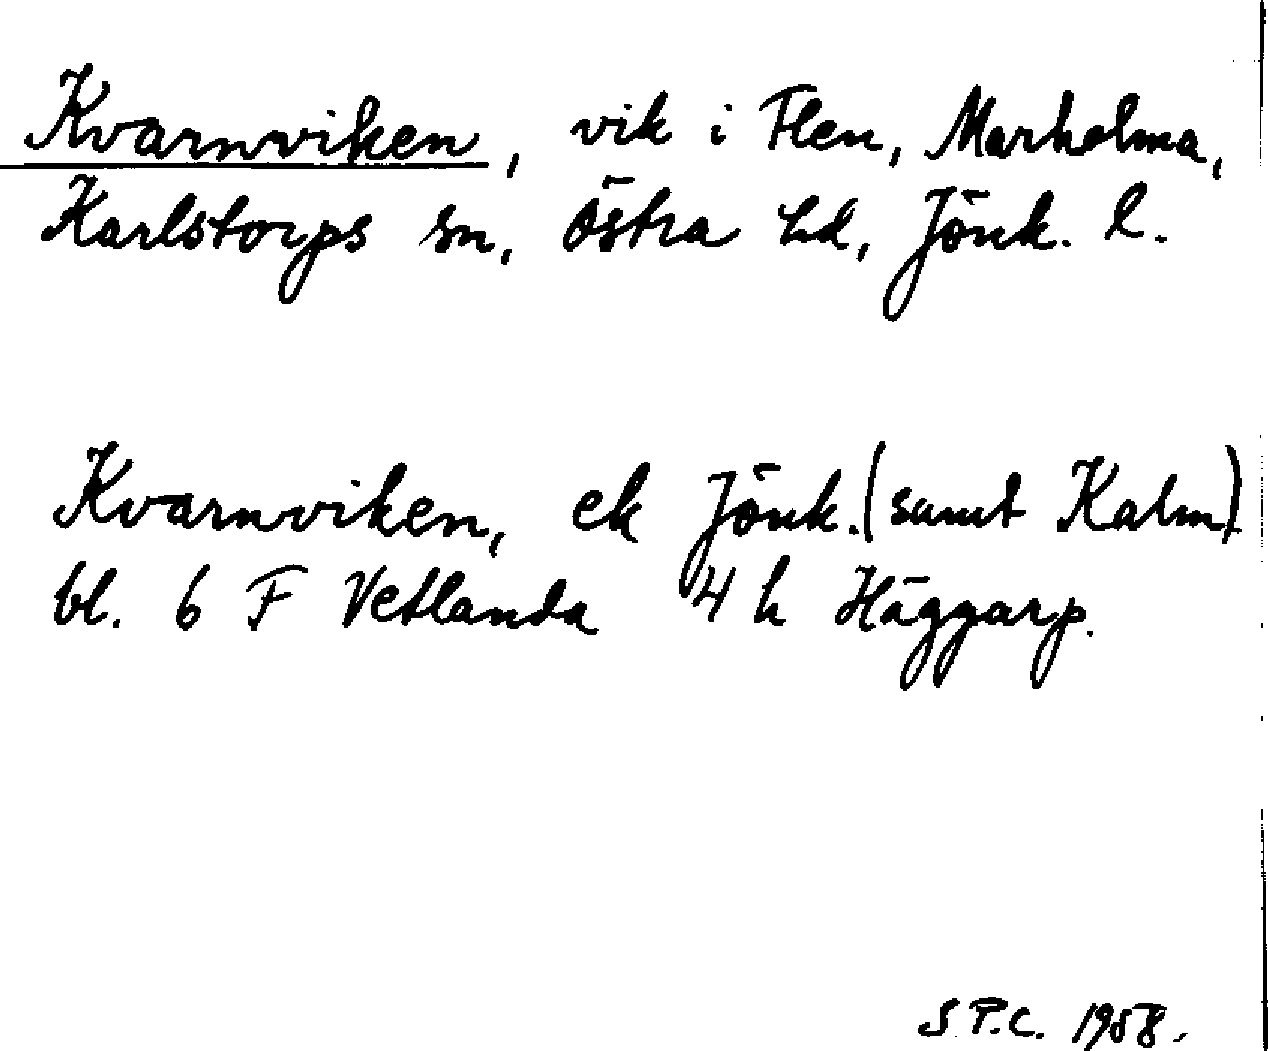 Kvarnviken, vik i Flen, Marholma,
Karlstorps sn, Östra hd, Jönk. l.
Kvarnviken, ek Jönk. (samt Kalm)
bl. 6 F Vetlanda 4 h Häggarp.
S.P.C. 1958.